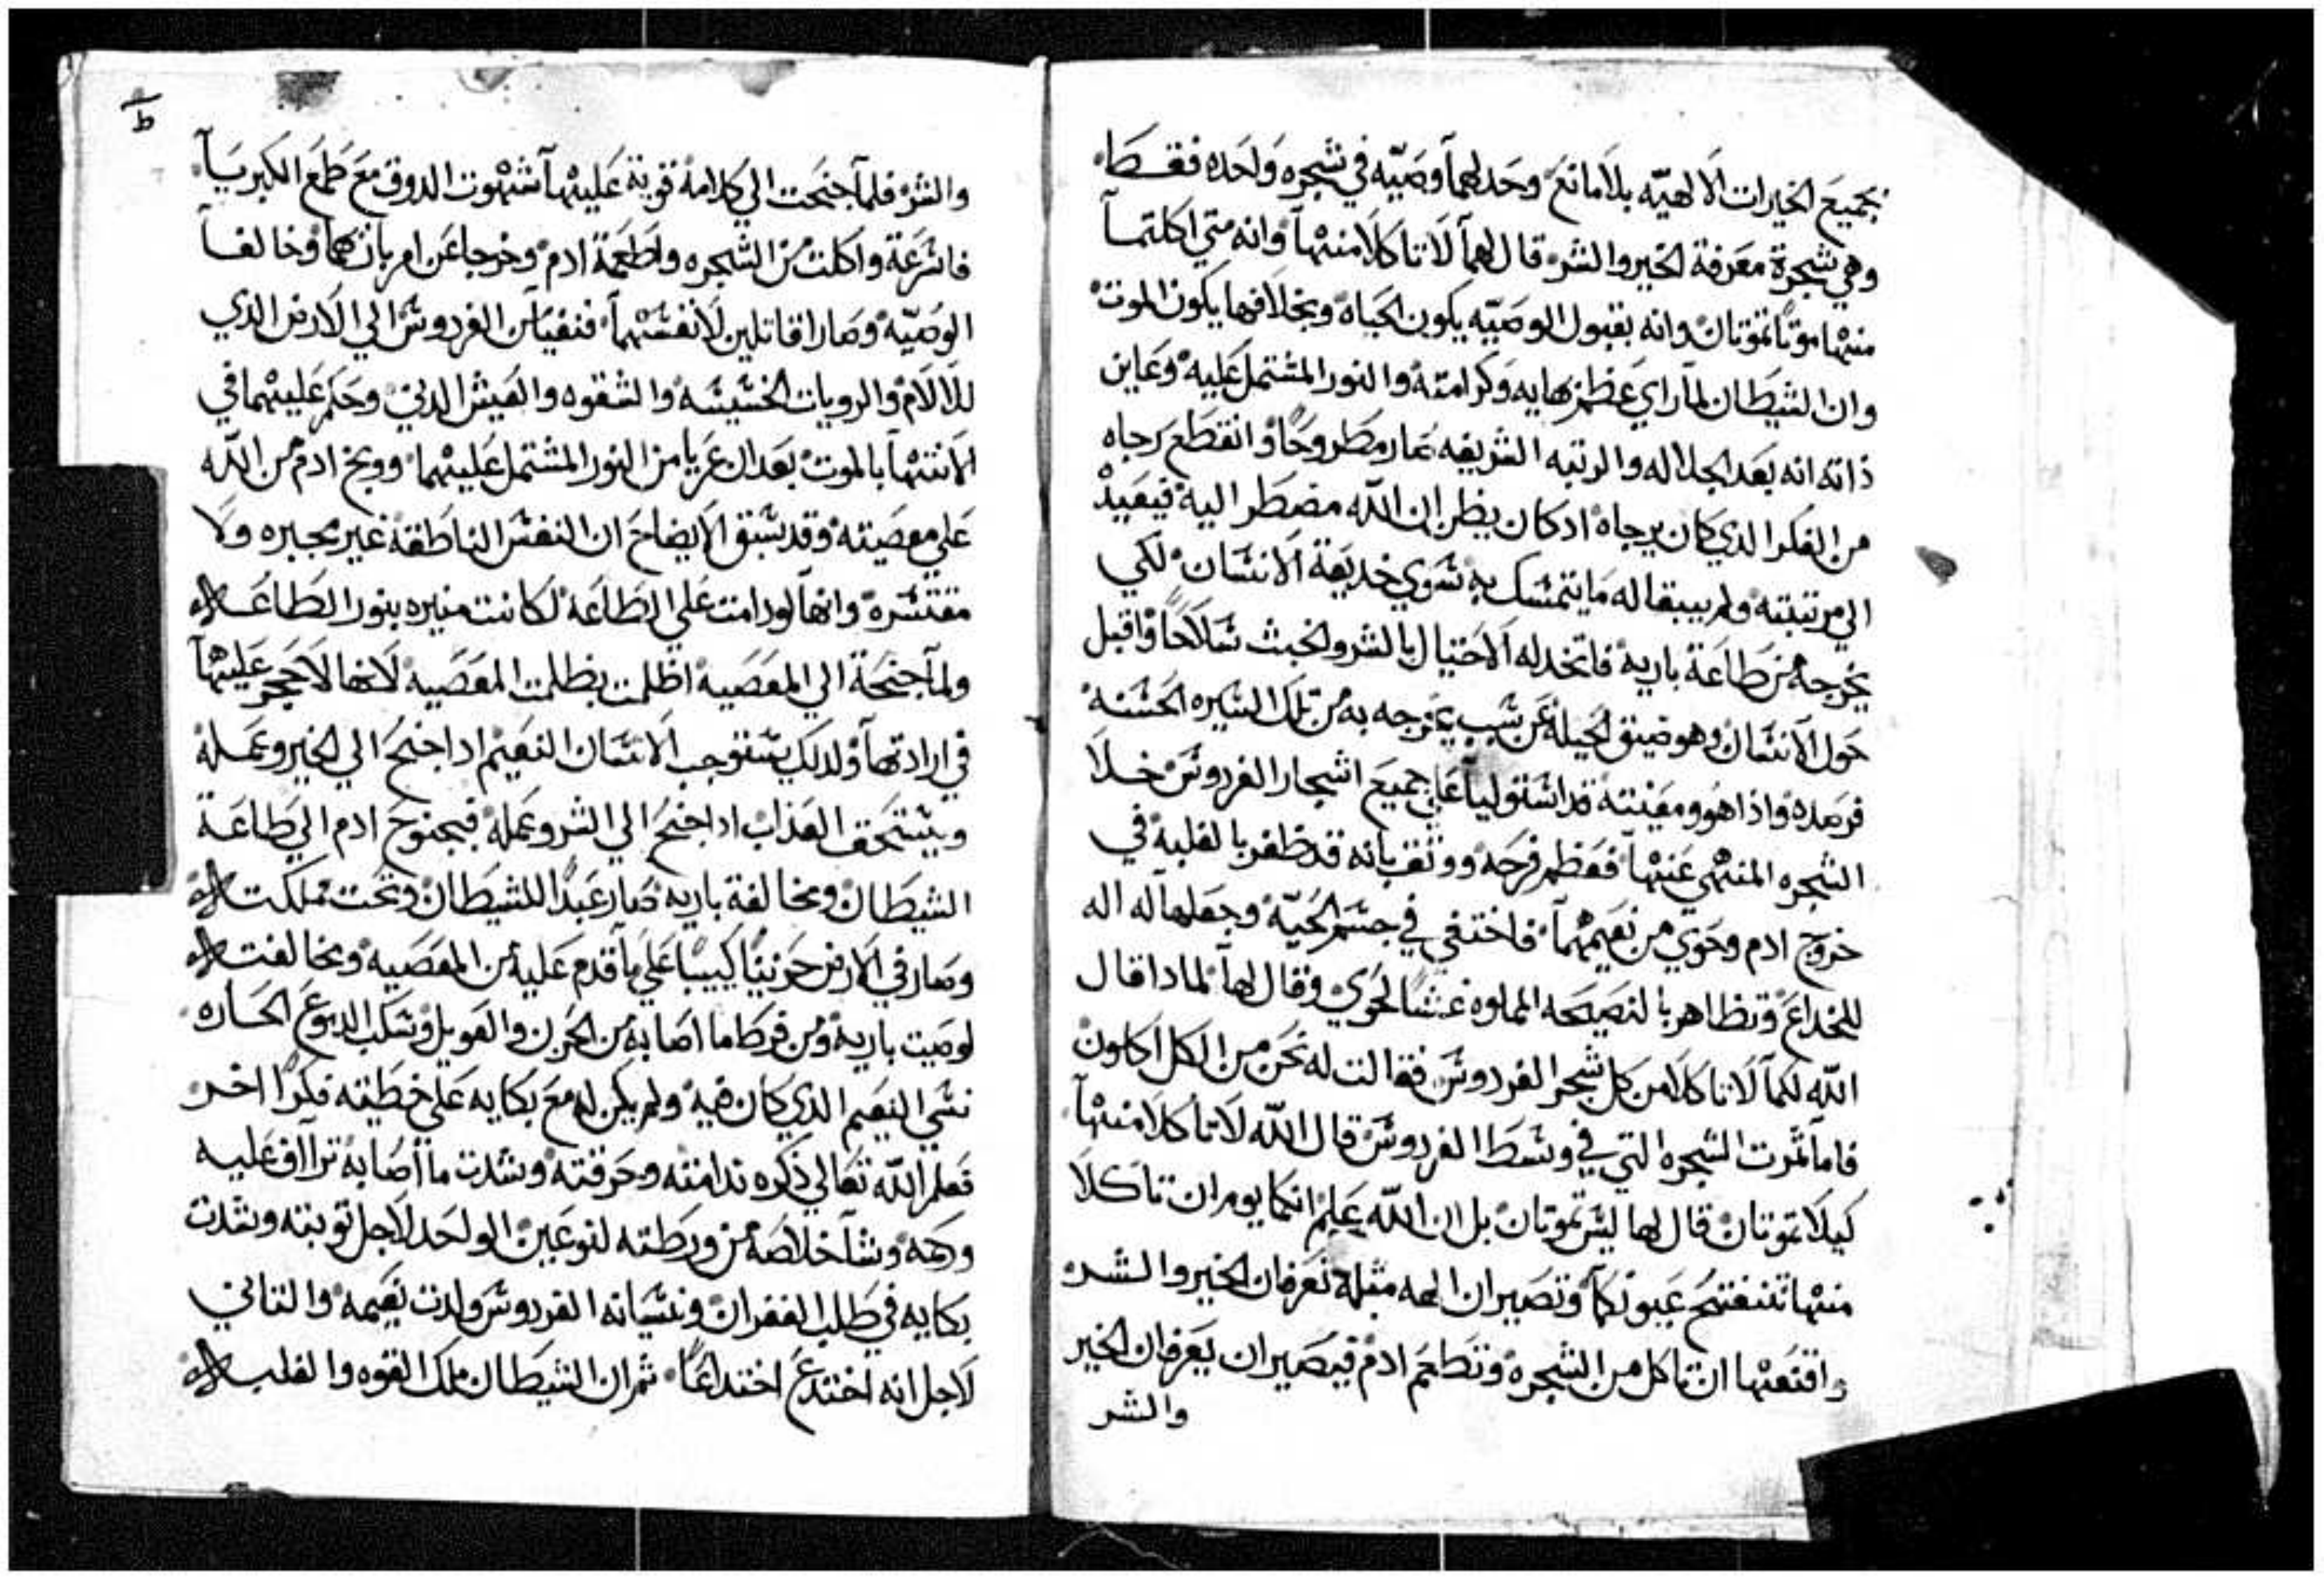 بجميع الخيرات الالهيّه بلا مانع وحد لهما وصيّه في شجره واحده فقط
وهي شجرة معرفة الخير والشر قال لهما لا تاكلا منها وانه متي اكلتما
منها موتًا تموتان وانه بقبول الوصيّه يكون الحياه وبخلافها يكون الموت
وان الشيطان لما راي عظم بهايه وكرامته والنور المشتمل عليه وعاين
ذاته انه بعد الجلاله والرتبه الشريفه صار مطروحًا وانقطع رجاه
من الفكر الدي كان يرجاه ادكان يظن ان الله مضطر اليه فيعيد
الي مرتبته ولم يبقا له ما يتمسك به سوي خديعة الانسان لكي
يخرجه من طاعة باريه فاتخد له الاحتيال بالشر والخبث سلاحًا واقبل
حول الانسان وهو ضيق الحيله عن سبب يخرجه به من تلك السيره الحسنه
فرصده واذا هو ومعينته قد استوليا علي جميع اشجار الفردوس خلا
الشجره المنهي عنها فعظم فرحه ووثق بانه قد ظفر بالغلبه في
خروج ادم وحوي من نعيمهما فاختفي في جسم الحيّه وجعلها له اله
للخداع وتظاهر بالنصيحه المملوه غشًا لحوي وقال لها لمادا قال
الله لكما لا تاكلا من كل شجر الفردوس فقالت له نحن من الكل اكلون
فاما ثمرت الشجره التي في وسط الفردوس قال الله لا تاكلا منها
كيلا تموتان قال لها ليس تموتان بل ان الله علم انكما يوم ان تاكلا
منها تنفتح عيونكما وتصيران الهه مثله تعرفان الخير والشر
واقنعها ان تاكل من الشجره وتطعم ادم فيصيران يعرفان الخير
والشر
ط
والشر فلما جنحت الي كلامه قوية عليها شهوت الدوق مع طمع الكبريا
فاسرعة واكلت من الشجره واطعمة ادم وخرجا عن امر باريهما وخالفا
الوصيّه وصارا قاتلين لانفسهما فنفيا من الفردوس الي الارض الدي
للالام والرويات الخسيسه والشقوه والعيش الدني وحكم عليهما في
الانتها بالموت بعد ان عريا من النور المشتمل عليهما ووبخ ادم من الله
علي معصيته وقد سبق الايضاح ان النفس الناطقة غير مجبره ولا
مقتسره وانها لو دامت علي الطاعه لكانت منيره بنور الطاعه
ولما جنحة الي المعصيه اظلمت بظلمت المعصيه لانها لا حجر عليها
في ارادتها ولدلك يستوجب الانسان النعيم ادا جنح الي الخير وعمله
ويستحق العذاب ادا جنح الي الشر وعمله فبجنوح ادم الي طاعة
الشيطان ومخالفة باريه صار عبدًا للشيطان وتحت مملكته
وصار في الارض حزينًا كييبًا علي ما قدم عليه من المعصيه ومخالفته
لوصيت باريه ومن فرط ما اصابه من الحزن والعويل وسكب الدموع الحاره
نسي النعيم الدي كان فيه ولم يكن له مع بكايه علي خطيته فكرًا اخر
فعلم الله تعالي ذكره ندامته وحرقته وشدت ما اصابه تراآف عليه
ورحمه وشا خلاصه من ورطته لنوعين الواحد لاجل توبته وشدت
بكايه في طلب الغفران ونسيانه الفردوس ولدت نعيمه والتاني
لاجل انه اختدع اختداعًا ثم ان الشيطان ملك القوه والغلبه